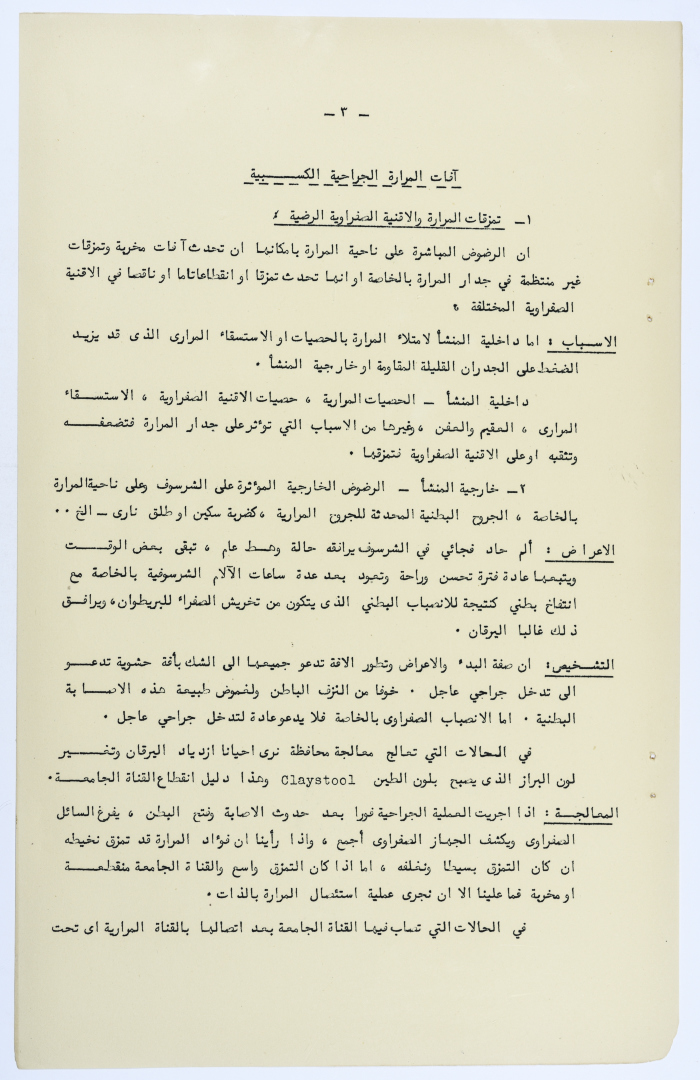 ـ ٣ ـ
آفات المرارة الجراحية الكســـبية
١ـ تمزقات المرارة والاقنية الصفراوية الرضية :
ان الرضوض المباشرة على ناحية المرارة بامكانها ان تحدث آفات مخربة وتمزقات
غير منتظمة في جدار المرارة بالخاصة او انها تحدث تمزقا او انقطاعا تاما او ناقصا في الاقنية
الصفراوية المختلفة .
الاسباب : اما داخلية المنشأ لامتلاء المرارة بالحصيات او الاستسقاء المرارى الذى قد يزيــد
الضغط على الجدران القليلة المقاومة او خارجية المنشأ .
داخلية المنشأ ــ الحصيات المرارية ، حصيات الاقنية الصفراوية ، الاستســقاء
المرارى ، العقيم والعفن ، وغيرها من الاسباب التي توئثر على جدار المرارة فتضعفــه
وتثقبه او على الاقنية الصفراوية فتمزقها .
٢ـ خارجية المنشأ ــ الرضوض الخارجية الموئثرة على الشرسوف وعلى ناحية المرارة
بالخاصة ، الجروح البطنية المحدثة للجروح المرارية ، كضربة سكين او طلق نارى ــ الخ ..
الاعراض : ألم حاد فجائي في الشرسوف يرافقه حالة وهـط عام ، تبقى بعض الوقــت
ويتبعها عادة فترة تحسن وراحة وتعود بعد عدة ساعات الآلام الشرسوفية بالخاصة مع
انتفاخ بطني كنتيجة للانصباب البطني الذى يتكون من تخريش الصفراء للبريطوان ، ويرافــق
ذلك غالبا اليرقان .
التشخيص: ان صفة البدء والاعراض وتطور الافة تدعو جميعها الى الشك بأفة حشوية تدعــو
الى تدخل جراحي عاجل . خوفا من النزف الباطن ولغموض طبيعة هذه الاصــابة
البطنية . اما الانصباب الصفراوى بالخاصة فلا يدعو عادة لتدخل جراحي عاجل .
في الحالات التي تعالج معالجة محافظة نرى احيانا ازدياد اليرقان وتغــير
لون البراز الذى يصبح بلون الطين Claystool وهذا دليل انقطاع القناة الجامعــة.
المعالجــة : اذا اجريت العملية الجراحية فورا بعد حدوث الاصابة وفتح البطن ، يفرغ السائل
الصفراوى ويكشف الجهاز الصفراوى أجمع ، واذا رأينا ان فوئاد المرارة قد تمزق نخيطه
ان كان التمزق بسيطا ونغلفه ، اما اذا كان التمزق واسع والقناة الجامعة منقطعــة
او مخربة فما علينا الا ان نجرى عملية استئصال المرارة بالذات .
في الحالات التي تصاب فيها القناة الجامعة بعد اتصالها بالقناة المرارية اى تحت